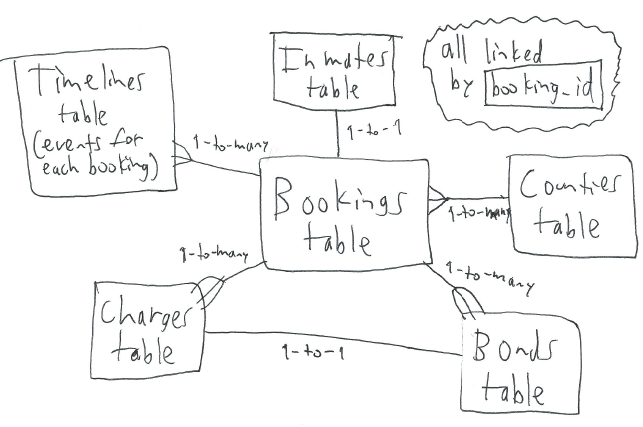 Timelines
table
(events for
each booking)
Inmates
table
all linked
by booking_id
1-to-many
1-to-1
Bookings
table
1-to-many
Counties
table
1-to-many
1-to-many
Charges
table
1-to-1
Bonds
table